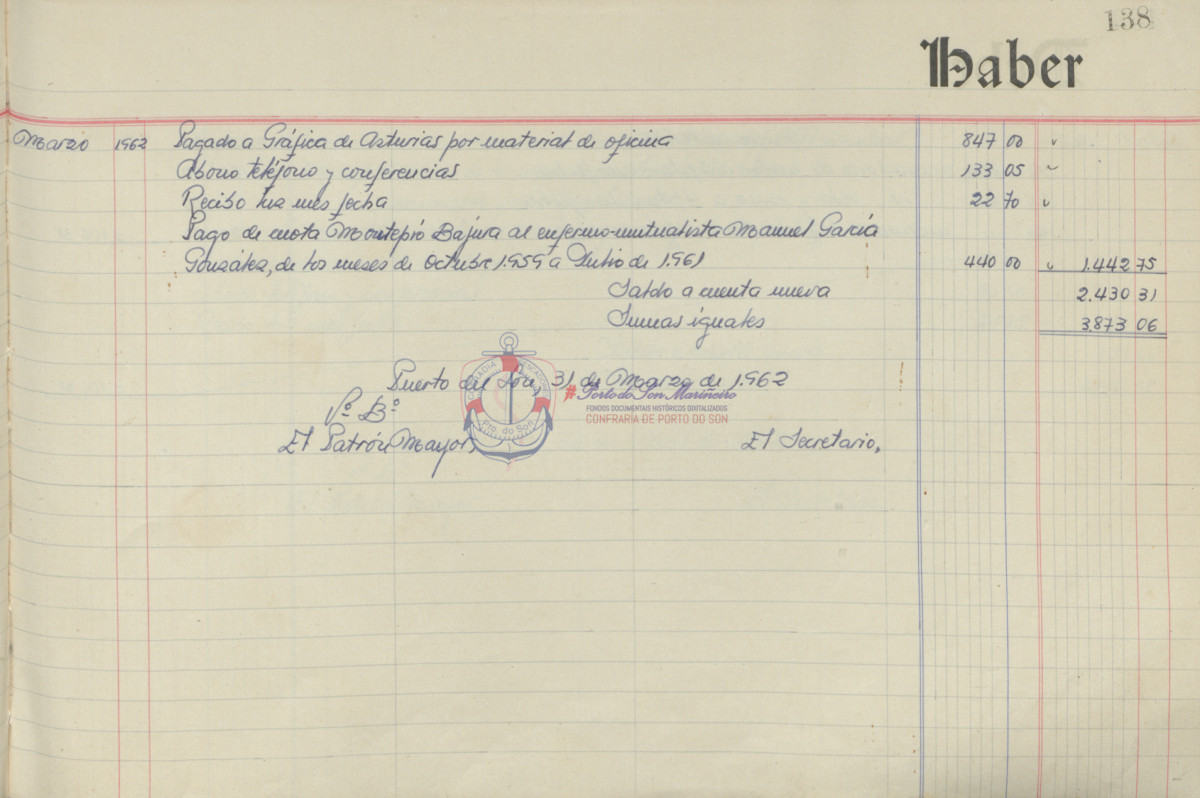 138
Haber
Marzo 1962 Pagado a Gráfica de Asturias por material de oficina 847 00
Abono teléfono y conferencias 133 05
Recibo luz mes fecha 22 70
Pago de cuota Montepió Bajura al enfermo-mutualista Manuel García
González, de los meses de Octubre 1.959 a Julio de 1.961 440 00 1.442 75
Saldo a cuenta nueva 2.430 31
Sumas iguales 3.873 06
Puerto del Son, 31 de Marzo de 1.962
#Porto do Son Mariñeiro
FONDOS DOCUMENTAIS HISTÓRICOS DIXITALIZADOS
CONFRARÍA DE PORTO DO SON
Pto. do Son
Vº Bº
El Patrón Mayor, El Secretario,